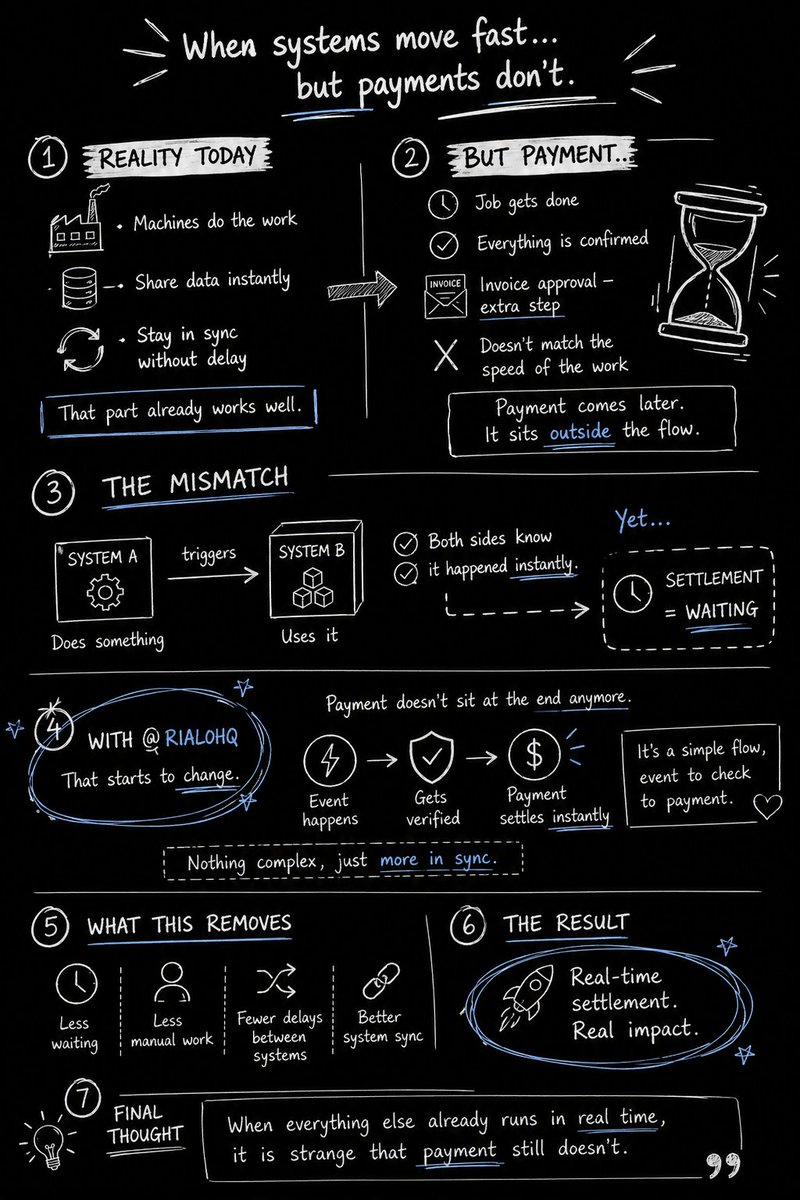 When systems move fast...
but payments don't.
1 REALITY TODAY
• Machines do the work
• Share data instantly
• Stay in sync
without delay
That part already works well.
2 BUT PAYMENT...
Job gets done
Everything is confirmed
INVOICE
Invoice approval –
extra step
Doesn't match the
speed of the work
Payment comes later.
It sits outside the flow.
3 THE MISMATCH
SYSTEM A
Does something
triggers
SYSTEM B
Uses it
Both sides know
it happened instantly.
Yet...
SETTLEMENT
= WAITING
4 WITH @RIALOHQ
That starts to change.
Payment doesn't sit at the end anymore.
Event
happens
Gets
verified
$
Payment
settles instantly
It's a simple flow,
event to check
to payment.
Nothing complex, just more in sync.
5 WHAT THIS REMOVES
Less
waiting
Less
manual work
Fewer delays
between
systems
Better
system sync
6 THE RESULT
Real-time
settlement.
Real impact.
7 FINAL
THOUGHT
When everything else already runs in real time,
it is strange that payment still doesn't.
”